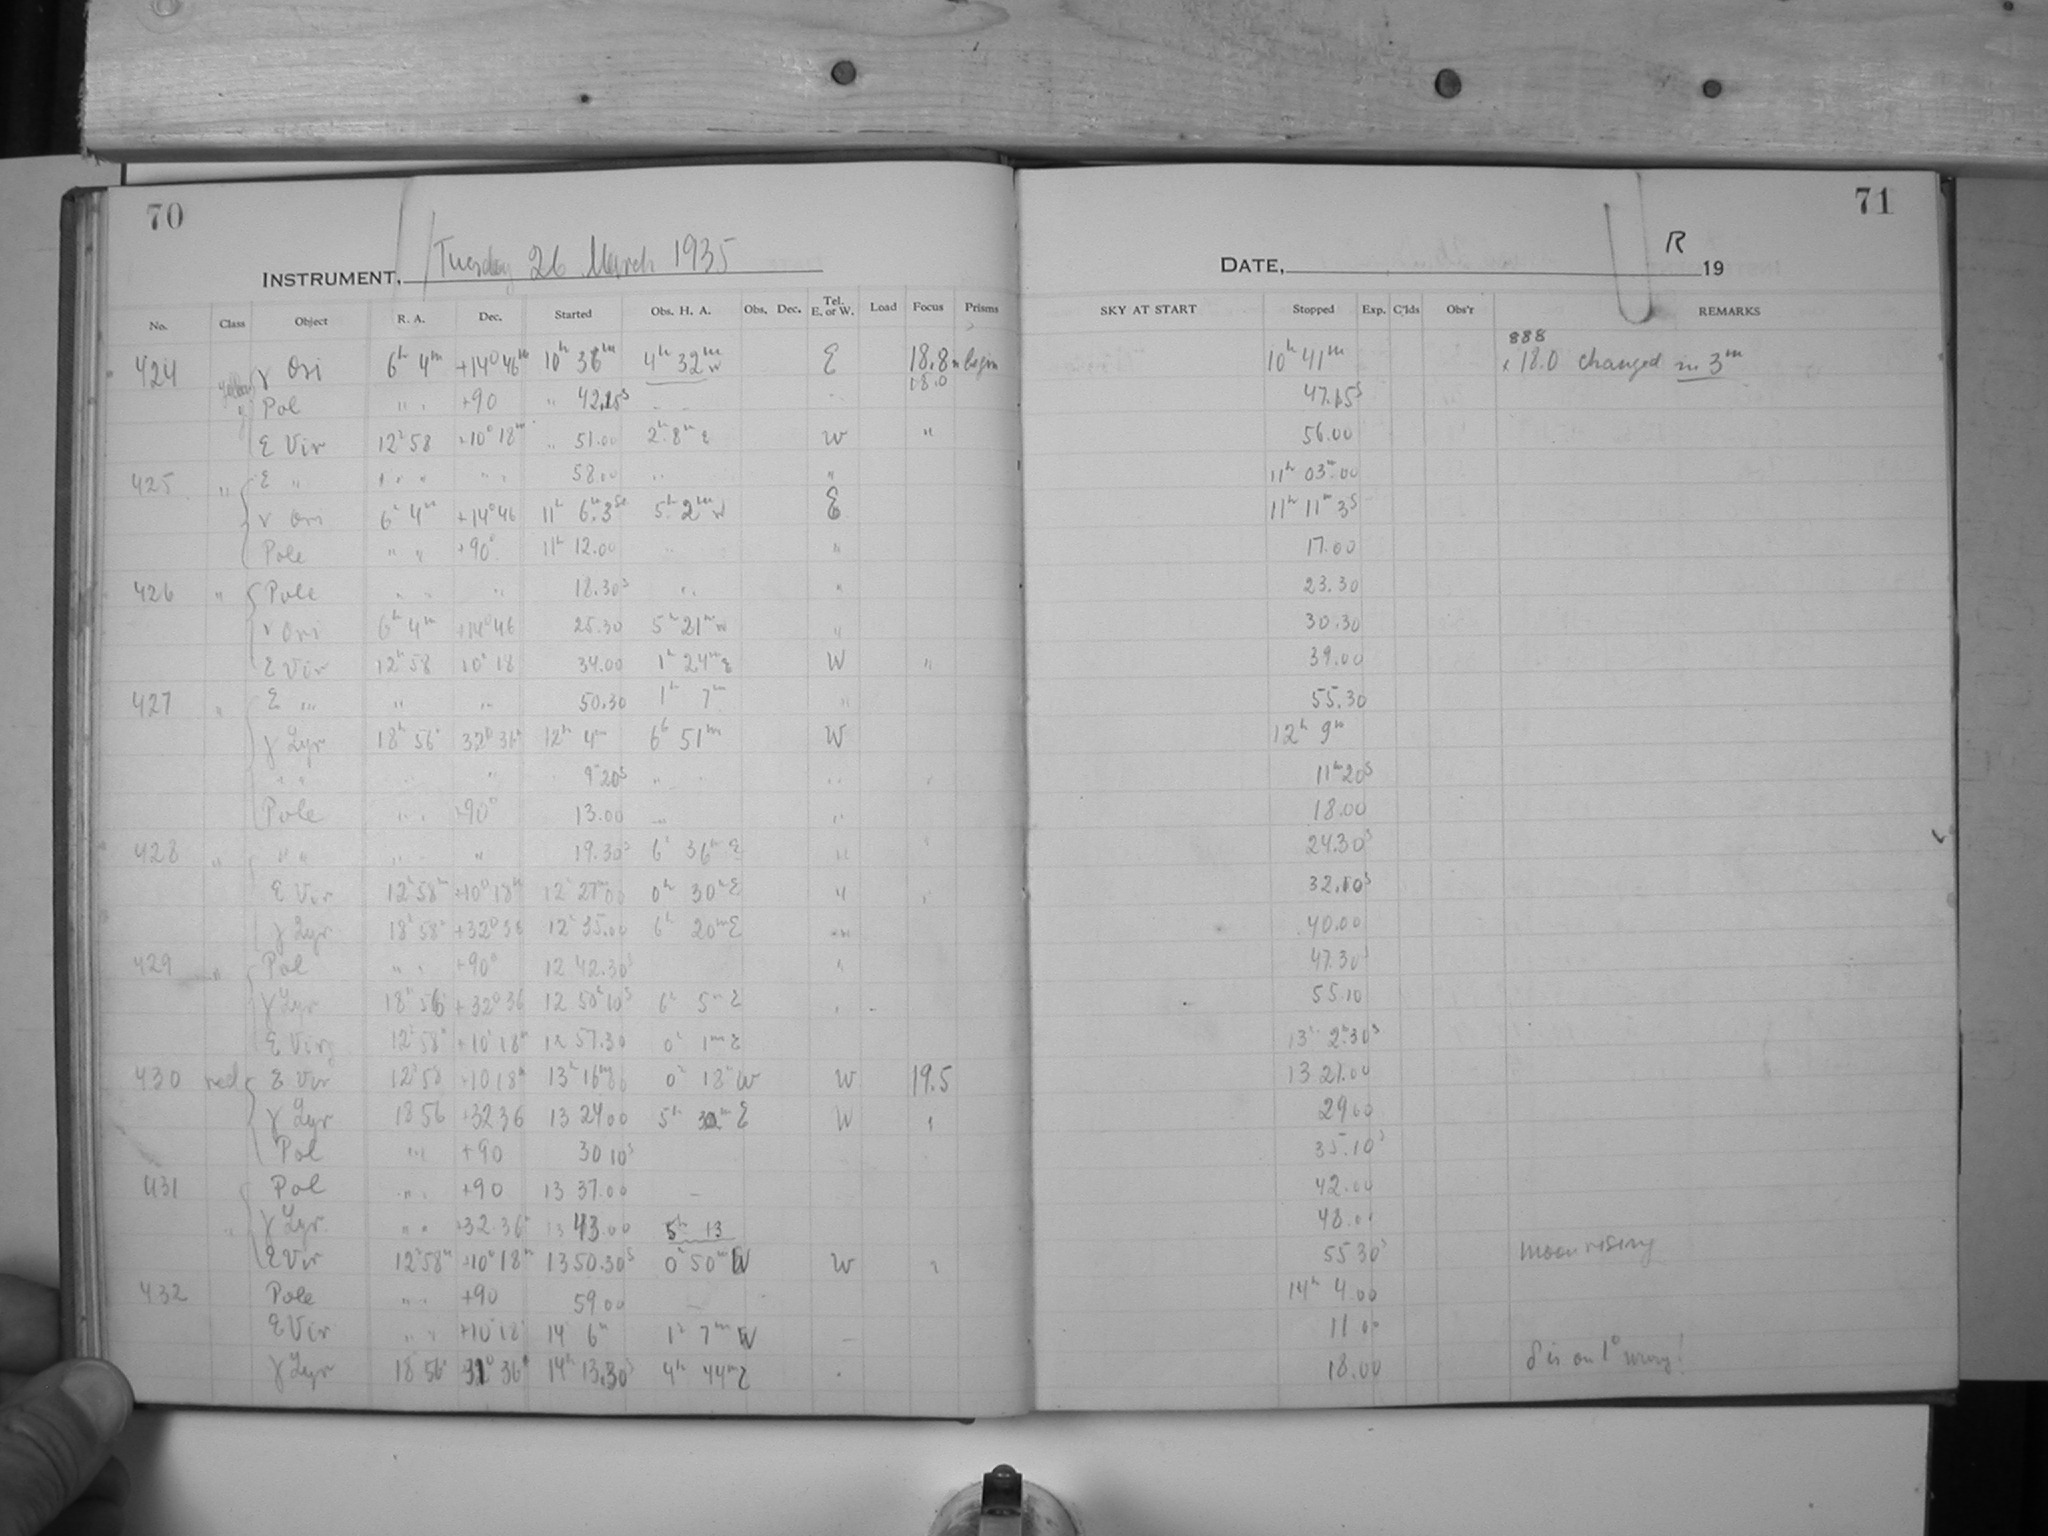 70
Tuesday 26 March 1935
INSTRUMENT,
No. Class Object R. A. Dec. Started Obs. H. A. Obs. Dec. Tel. E. or W. Load Focus Prisms
424 γ Ori 6h 4m +14° 46m 10h 36m 4h 32m w E 18.8 begin
18.0
Pol " " +90 " 42.15s
ε Vir 12h 58 +10° 18m " 51.00 2h 8m ε W "
425 " ε " " " " " " 58.00 " "
γ Ori 6h 4m +14° 46 11h 6m.3 5h 2m w E
Pole " " +90° 11h 12.00 "
426 " Pole " " " 18.30s " "
γ Ori 6h 4m +14° 46 25.30 5h 21m w "
ε Vir 12h 58 10° 18 34.00 1h 24m ε W "
427 " ε " " " 50.30 1h 7m "
γ Lyr 18h 56 32° 36 12h 4m 6h 51m W
" " " " 9 20s " "
Pole " " +90° 13.00 "
428 " " " " " " 19.30s 6h 36m ε "
ε Vir 12h 58m +10° 18m 12h 27m00 0h 30m ε "
γ Lyr 18h 58 +32° 36 12h 35.00 6h 20m ε "
429 " Pol " " +90° 12 42.30s "
γ Lyr 18h 56 +32° 36 12 50 10s 6h 5m ε
ε Virg 12h 58 +10° 18 12 57.30 0h 1m ε
430 red ε Vir 12h 58 +10 18 13h 16m 0h 18m W W 19.5
γ Lyr 18 56 +32 36 13 24 00 5h 32m ε W "
Pol " " +90 30 10s
431 Pol " " +90 13 37.00 –
" γ Lyr " " +32.36 13 43.00 5h 13
ε Vir 12h 58m +10° 18m 13 50.30s 0h 50m W W "
432 Pole " " +90 59 00 –
ε Vir " " +10 18 14 6m 1h 7m W
γ Lyr 18 56 31° 36 14h 13.30s 4h 44m ε
71
R
DATE, 19
SKY AT START Stopped Exp. C'lds Obs'r REMARKS
888
10h 41m × 18.0 changed in 3m
47.15s
56.00
11h 03m.00
11h 11m 3s
17.00
23.30
30.30
39.00
55.30
12h 9m
11m 20s
18.00
24.30s
32.10s
40.00
47.30s
55.10
13h 2m 30s
13 21.00
29 00
35.10s
42.00
48.00
55 30s moon rising
14h 4.00
11 00
18.00 δ is on 1° wrong!